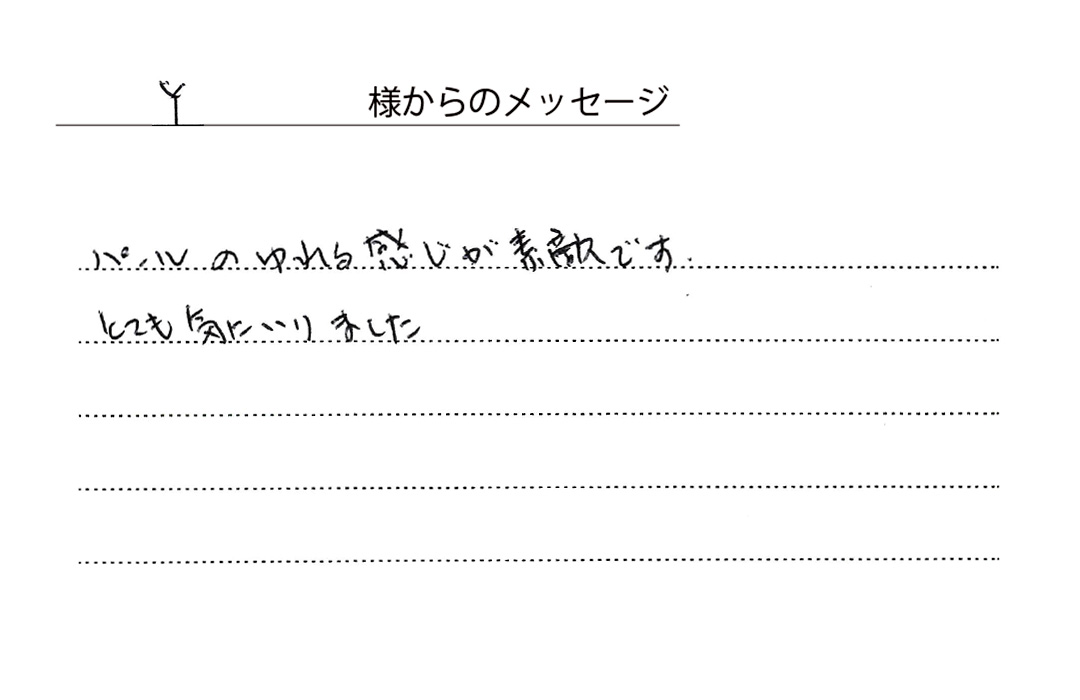 Y 様からのメッセージ
パールのゆれる感じが素敵です.
とても気にいりました